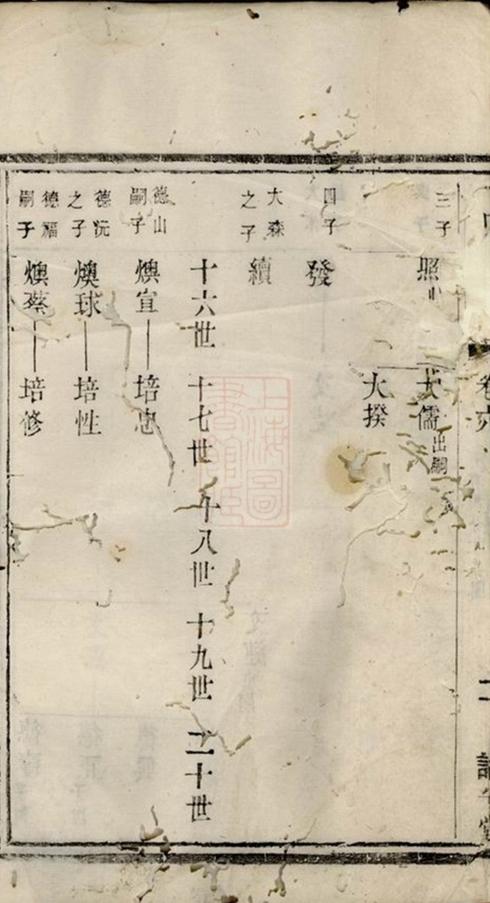 三子 照 大儒 出嗣
大揆
四子 發
大森之子 續
十六世 十七世 十八世 十九世 二十世
德山嗣子 燠宣 培忠
德沅之子 燠球 培性
德福嗣子 燠蔡 培修
上海圖書館藏